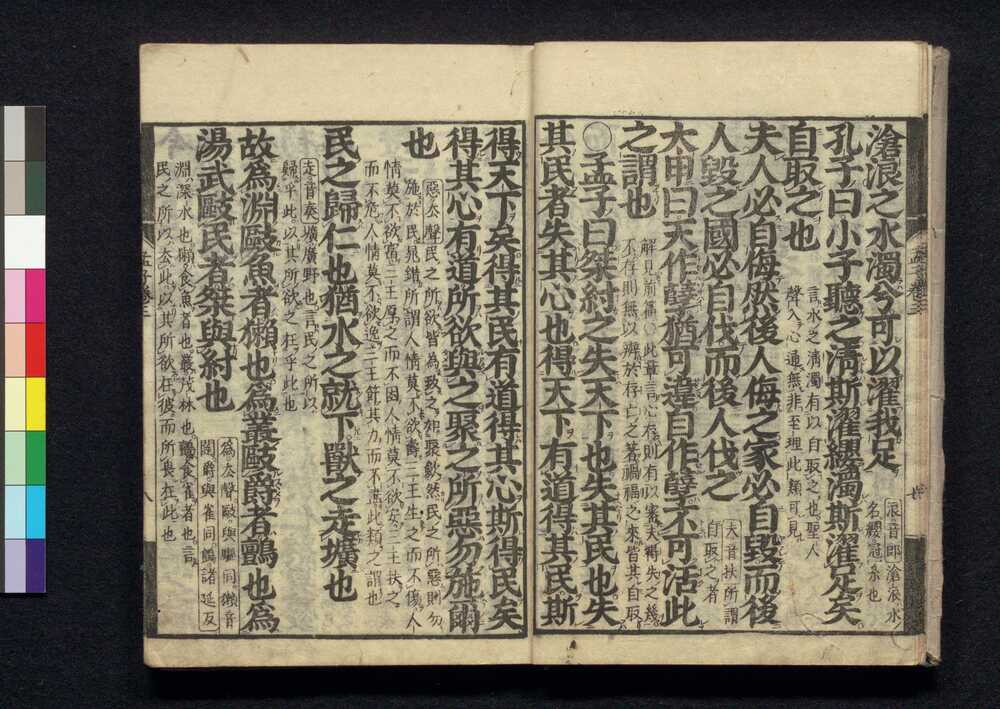 滄浪之水濁兮可以濯我足
浪音郎滄浪水
名纓冠系也
孔子曰小子聽之淸斯濯纓濁斯濯足矣
自取之也
言水之淸濁有以自取之也聖人
聲入心通無非至理此類可見
夫人必自侮然後人侮之家必自毀而後
人毀之國必自伐而後人伐之
夫音扶所謂
自取之者
太甲曰天作孽猶可違自作孽不可活此
之謂也
解見前篇○此章言心存則有以審夫得失之幾
不存則無以辨於存亡之著禍福之來皆其自取
○孟子曰桀紂之失天下也失其民也失
其民者失其心也得天下有道得其民斯
得天下矣得其民有道得其心斯得民矣
得其心有道所欲與之聚之所惡勿施爾
也
惡去聲民之所欲皆為致之如聚斂然民之所惡則勿
施於民鼂錯所謂人情莫不欲壽三王生之而不傷人
情莫不欲富三王厚之而不困人情莫不欲安三王扶之
而不危人情莫不欲逸三王節其力而不盡此類之謂也
民之歸仁也猶水之就下獸之走壙也
走音奏壙廣野也言民之所以
歸乎此以其所欲之在乎此也
故爲淵敺魚者獺也爲叢敺爵者鸇也爲
湯武敺民者桀與紂也
爲去聲敺與驅同獺音
闥爵與雀同鸇諸延反
淵深水也獺食魚者也叢茂林也鸇食雀者也言
民之所以去此以其所欲在彼而所畏在此也
孟子卷三